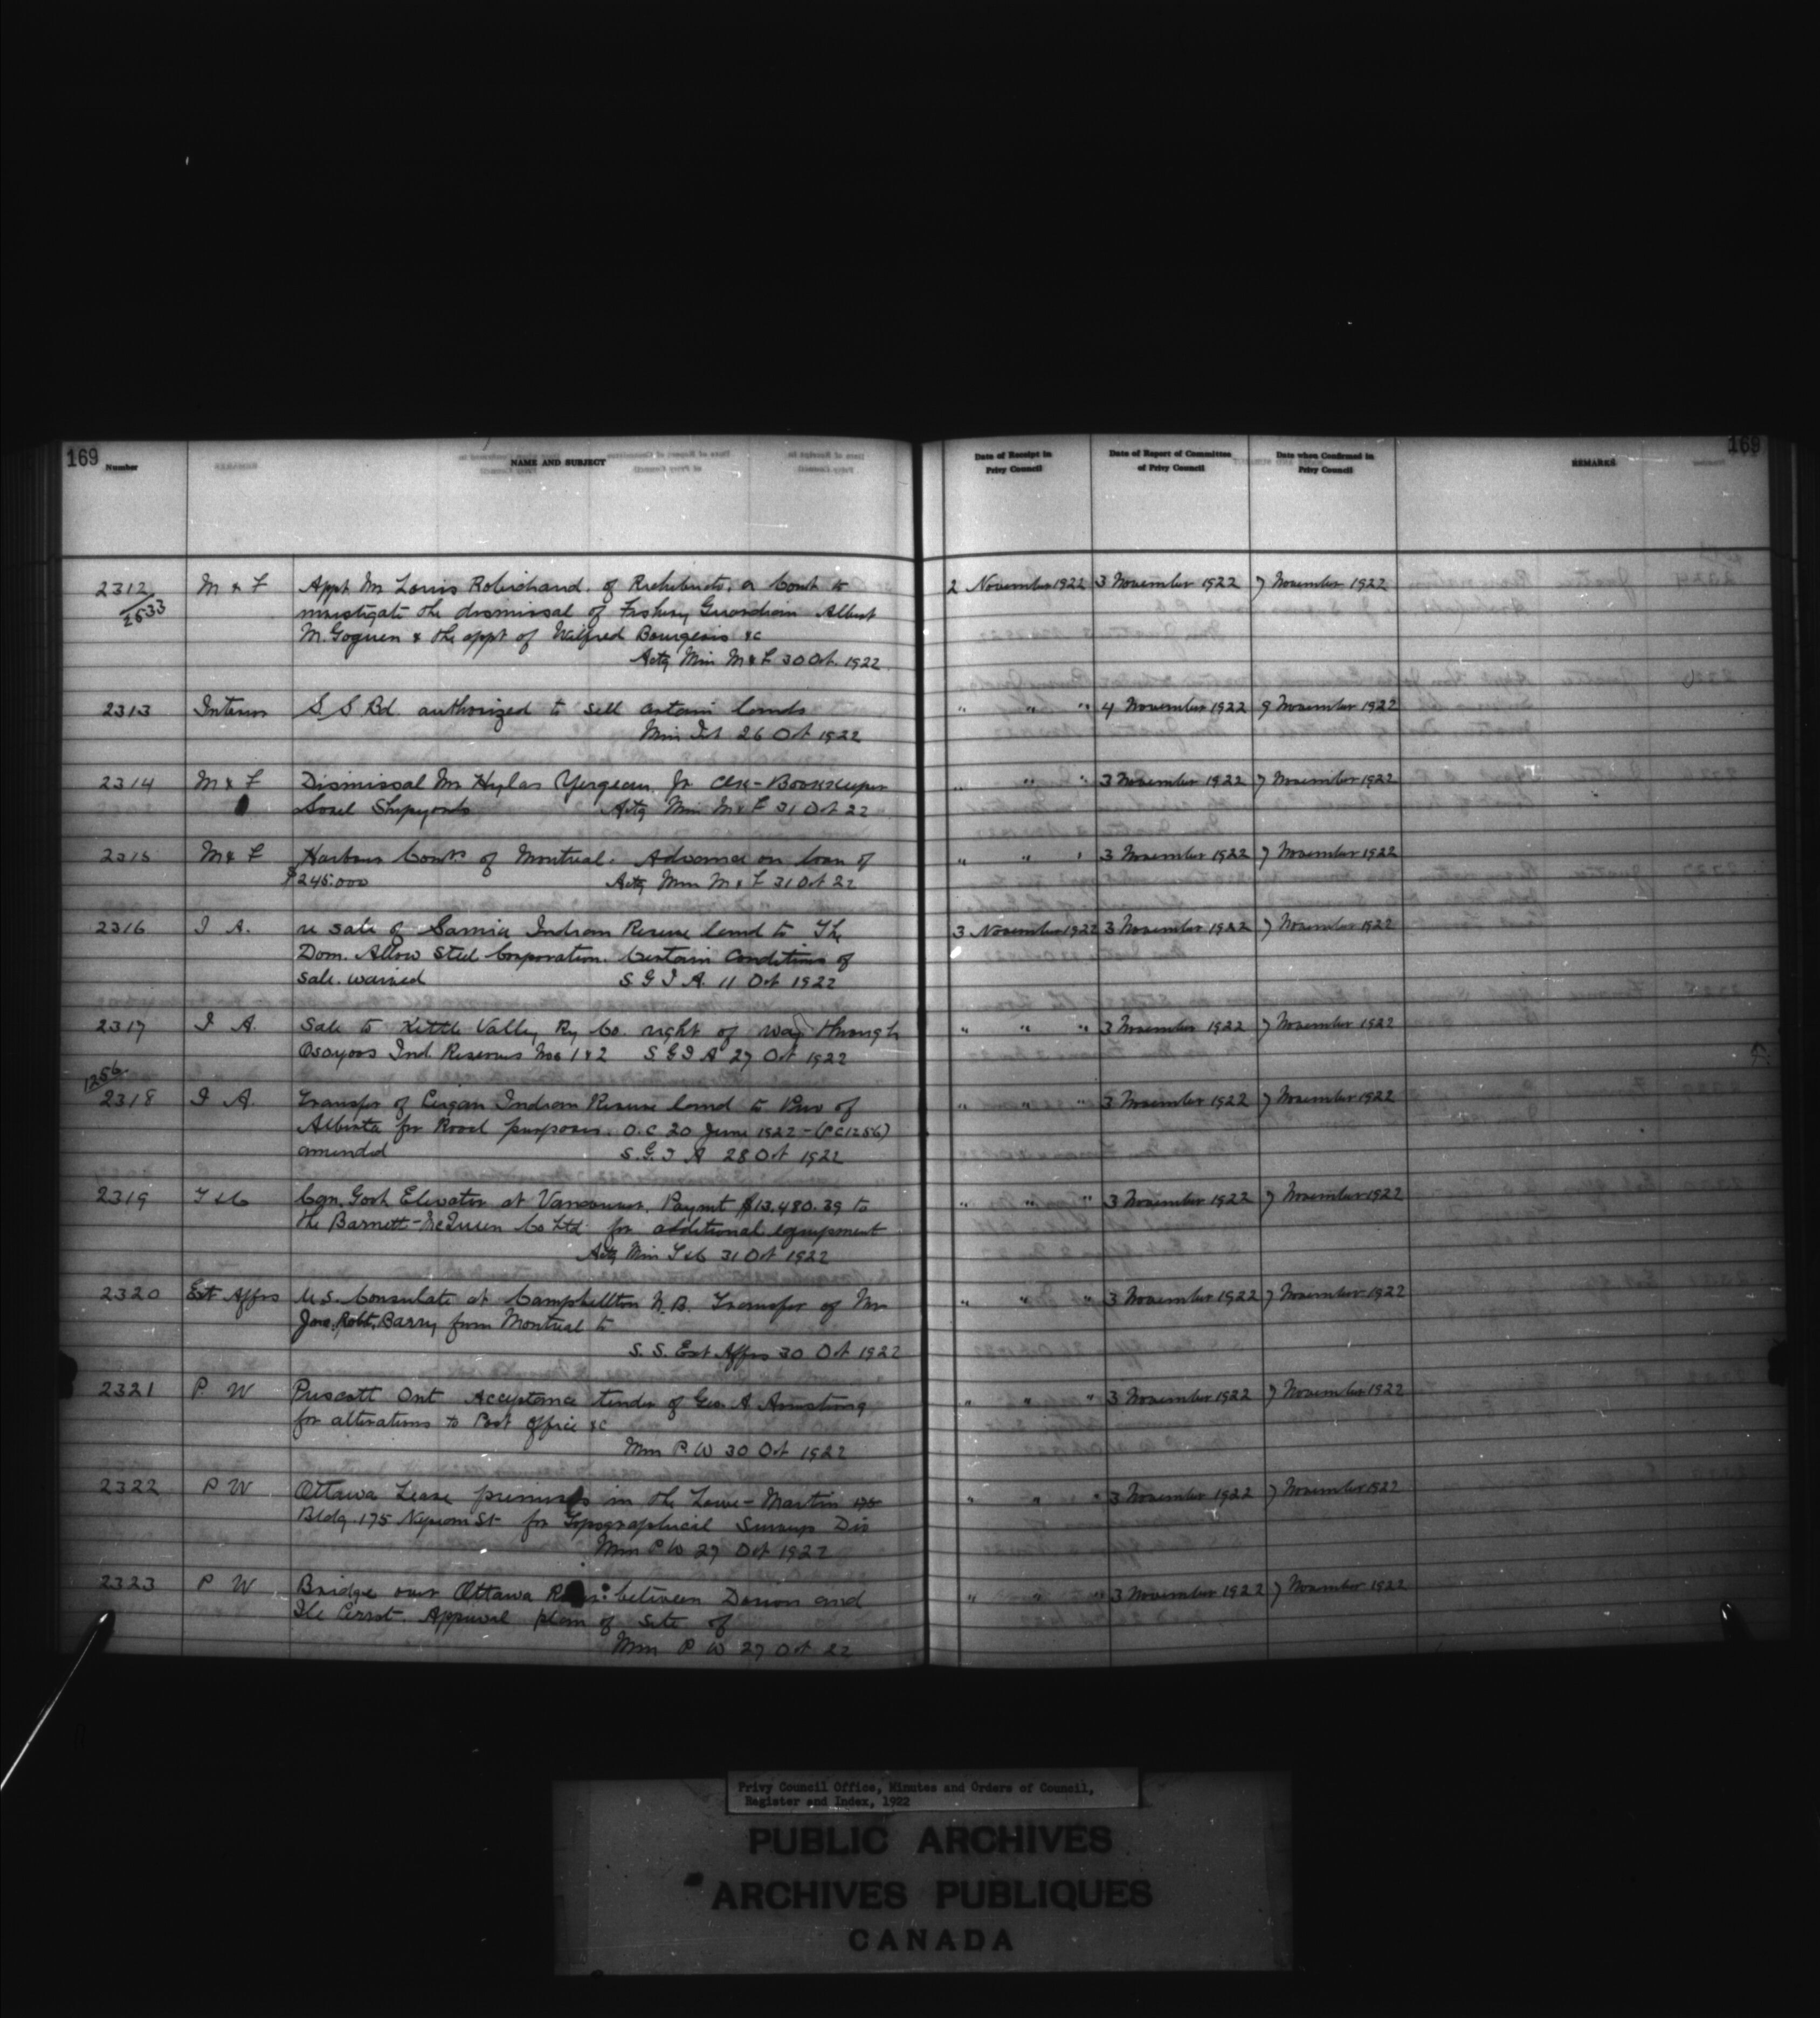 169
169
Number
NAME AND SUBJECT
Date of Receipt in Privy Council
Date of Report of Committee of Privy Council
Date when Confirmed in Privy Council
REMARKS
2312 M & F Appt Mr Louis Robichaud, of Richibucto, a Comr to 2 November 1922 3 November 1922 7 November 1922
2533 investigate the dismissal of Fishery Guardian Albert
M. Goguen & the appt of Wilfred Bourgeois &c
Actg Min M & F 30 Oct. 1922
2313 Interior S. S Bd. authorized to sell certain lands " " " 4 November 1922 9 November 1922
Min Int 26 Oct 1922
2314 M & F Dismissal Mr Hylas Yergeau, Jr Clk-Bookkeeper " " " 3 November 1922 7 November 1922
Sorel Shipyards Actg Min M & F 31 Oct 22
2315 M & F Harbour Comrs of Montreal. Advance on loan of " " " 3 November 1922 7 November 1922
$245.000 Actg Min M & F 31 Oct 22
2316 I A. re sale of Sarnia Indian Reserve land to The 3 November 1922 3 November 1922 7 November 1922
Dom. Allow Steel Corporation. Certain Conditions of
sale. waived S G I A. 11 Oct 1922
2317 I A. Sale to Kettle Valley Ry Co. right of way through " " " 3 November 1922 7 November 1922
Osoyoos Ind. Reserves Nos 1 & 2 S G I A 27 Oct 1922
1256
2318 I A. Transfer of Peigan Indian Reserve land to Prov of " " " 3 November 1922 7 November 1922
Alberta for Road purposes. O.C. 20 June 1922 - (PC 1256)
amended S. G. I A 28 Oct 1922
2319 T & C Cgn. Govt Elevator at Vancouver, Paymt $13,480.39 to " " " 3 November 1922 7 November 1922
the Barnett-McQueen Co Ltd for additional equipment
Actg Min T & C 31 Oct 1922
2320 Ext Affrs U.S. Consulate at Campbellton N.B. Transfer of Mr " " " 3 November 1922 7 November 1922
Jno. Robt. Barry from Montreal to
S. S. Ext Affrs 30 Oct 1922
2321 P. W Prescott Ont Acceptance tender of Geo. A Armstrong " " " 3 November 1922 7 November 1922
for alterations to Post Office &c
Min P. W 30 Oct 1922
2322 P W Ottawa Lease premises in the Lowe-Martin 175 " " " 3 November 1922 7 November 1922
Bldg. 175 Nepean St for Topographical Surveys Div
Min P W 27 Oct 1922
2323 P W Bridge over Ottawa between Dorion and " " " 3 November 1922 7 November 1922
Ile Perrot. Approval plan of site of
Min P W 27 Oct 22
Privy Council Office, Minutes and Orders of Council,
Register and Index, 1922
PUBLIC ARCHIVES
ARCHIVES PUBLIQUES
CANADA